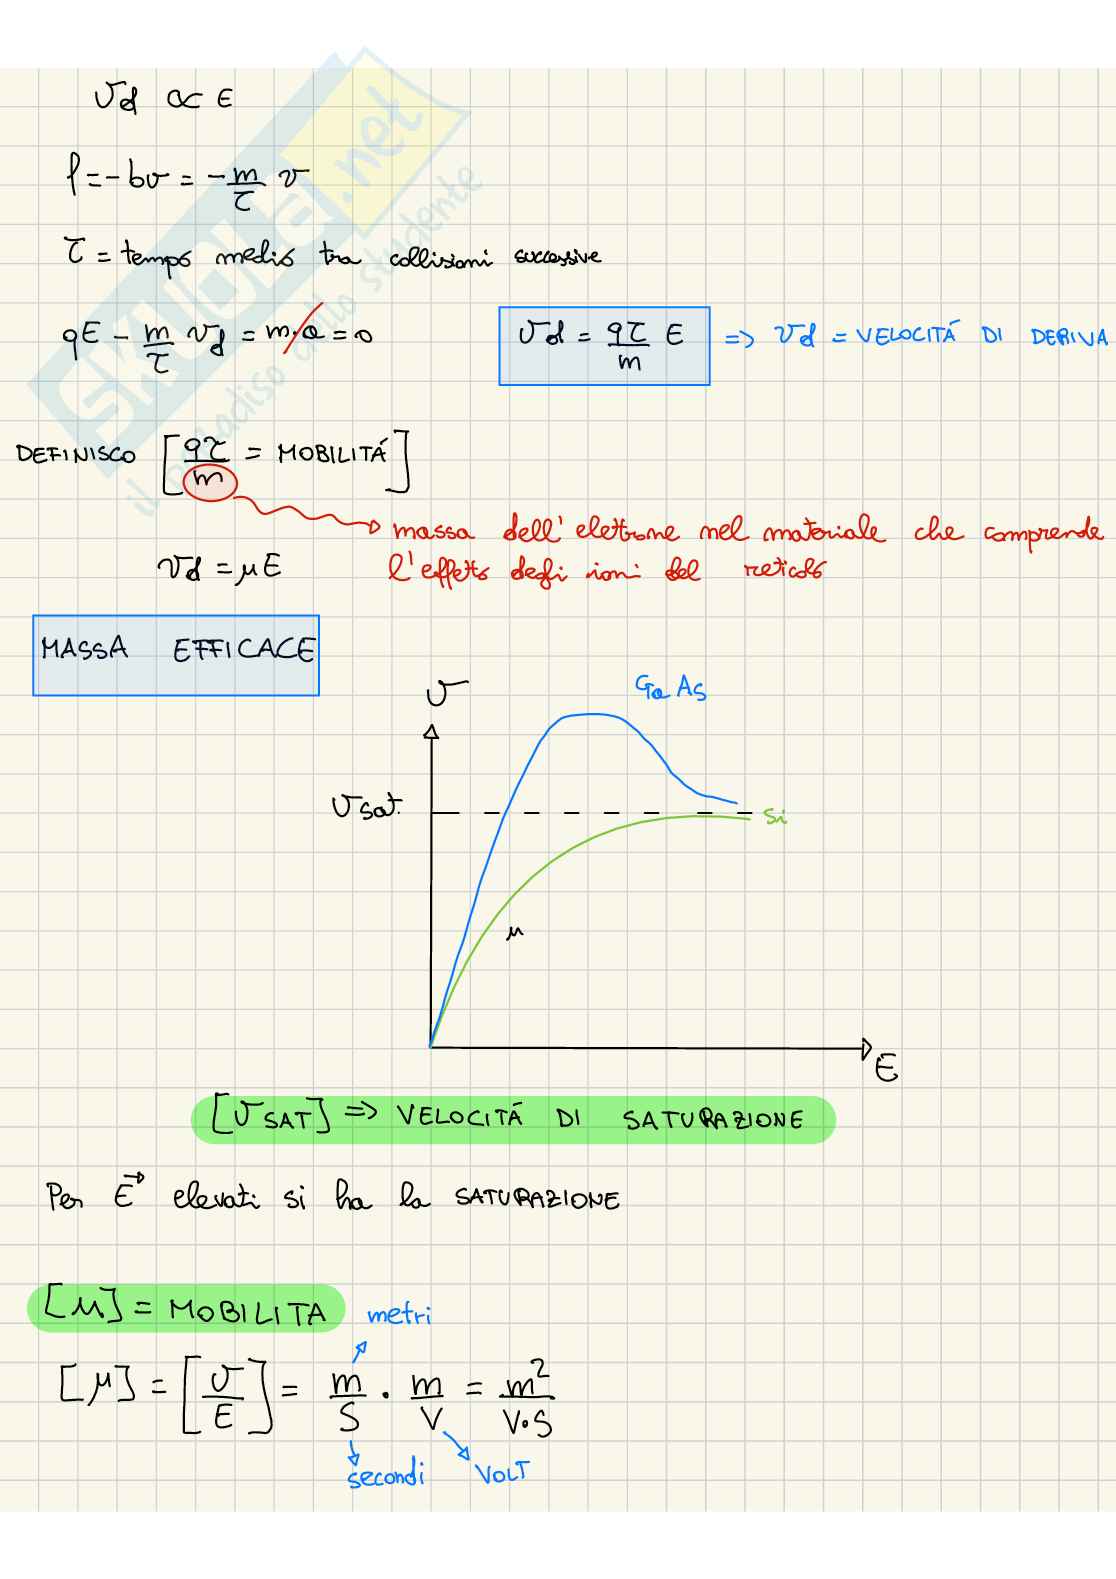 vd ∝ E
f = -bv = -m/τ v
τ = tempo medio tra collisioni successive
qE - m/τ vd = m·a = 0
vd = qτ/m E => vd = VELOCITÁ DI DERIVA
DEFINISCO [qτ/m = MOBILITÁ]
massa dell'elettrone nel materiale che comprende
vd = μE l'effetto degli ioni del reticolo
MASSA EFFICACE
v
GaAs
vsat.
Si
μ
E
[vSAT] => VELOCITÁ DI SATURAZIONE
Per E→ elevati si ha la SATURAZIONE
[μ] = MOBILITA
metri
[μ] = [v/E] = m/S · m/V = m²/V·S
secondi
VOLT
SKUOLA.net
il paradiso dello studente